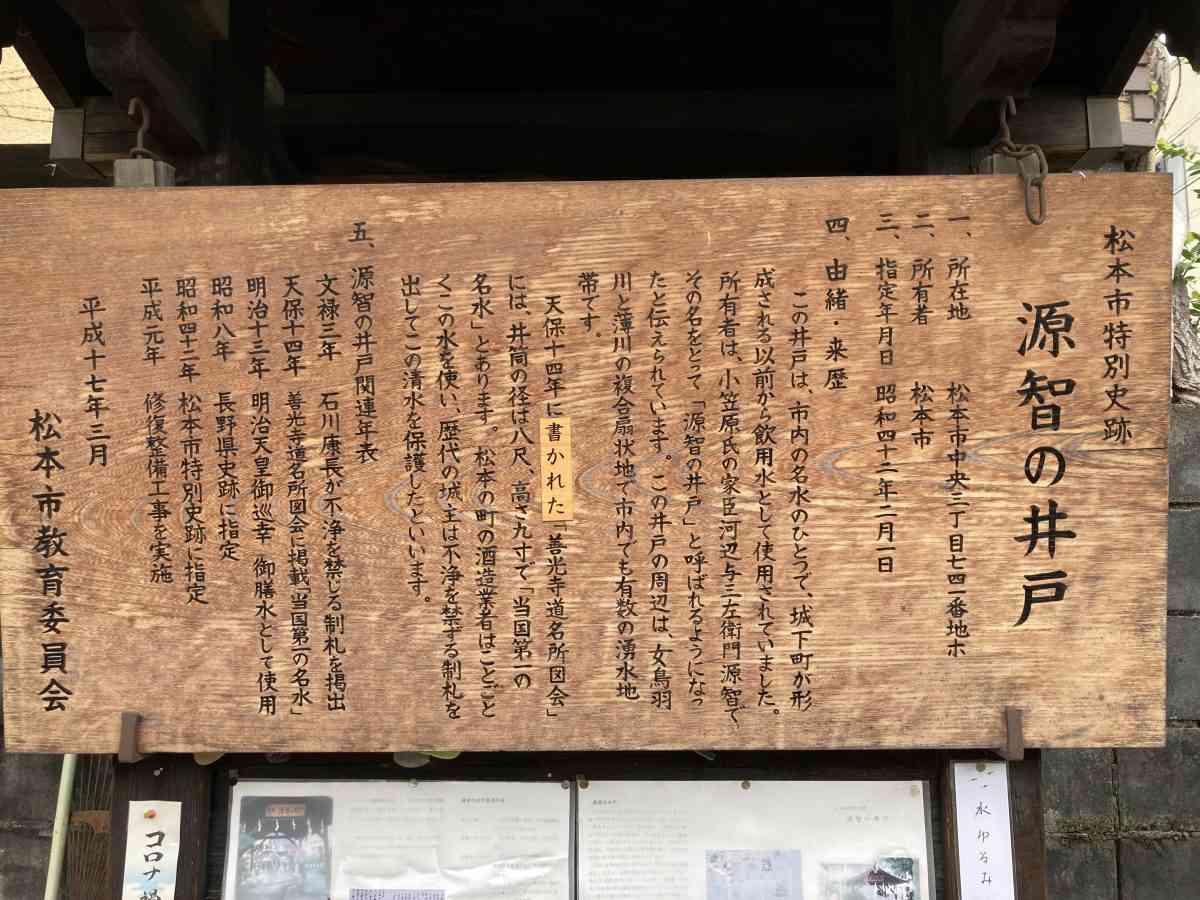 松本市特別史跡
源智の井戸
一、所在地 松本市中央三丁目七四一番地ホ
二、所有者 松本市
三、指定年月日 昭和四十二年二月一日
四、由緒・来歴
この井戸は、市内の名水のひとつで、城下町が形
成される以前から飲用水として使用されていました。
所有者は、小笠原氏の家臣河辺与三左衛門源智で
その名をとって「源智の井戸」と呼ばれるようになっ
たと伝えられています。この井戸の周辺は、女鳥羽
川と薄川の複合扇状地で市内でも有数の湧水地
帯です。
天保十四年に書かれた「善光寺道名所図会」
には、井筒の径は八尺、高さ九寸で「当国第一の
名水」とあります。松本の町の酒造業者はことごと
くこの水を使い、歴代の城主は不浄を禁ずる制札を
出してこの清水を保護したといいます。
五、源智の井戸関連年表
文禄三年 石川康長が不浄を禁じる制札を掲出
天保十四年 善光寺道名所図会に掲載「当国第一の名水」
明治十三年 明治天皇御巡幸 御膳水として使用
昭和八年 長野県史跡に指定
昭和四十二年 松本市特別史跡に指定
平成元年 修復整備工事を実施
平成十七年三月
松本市教育委員会
コロナ
水ゆるみ